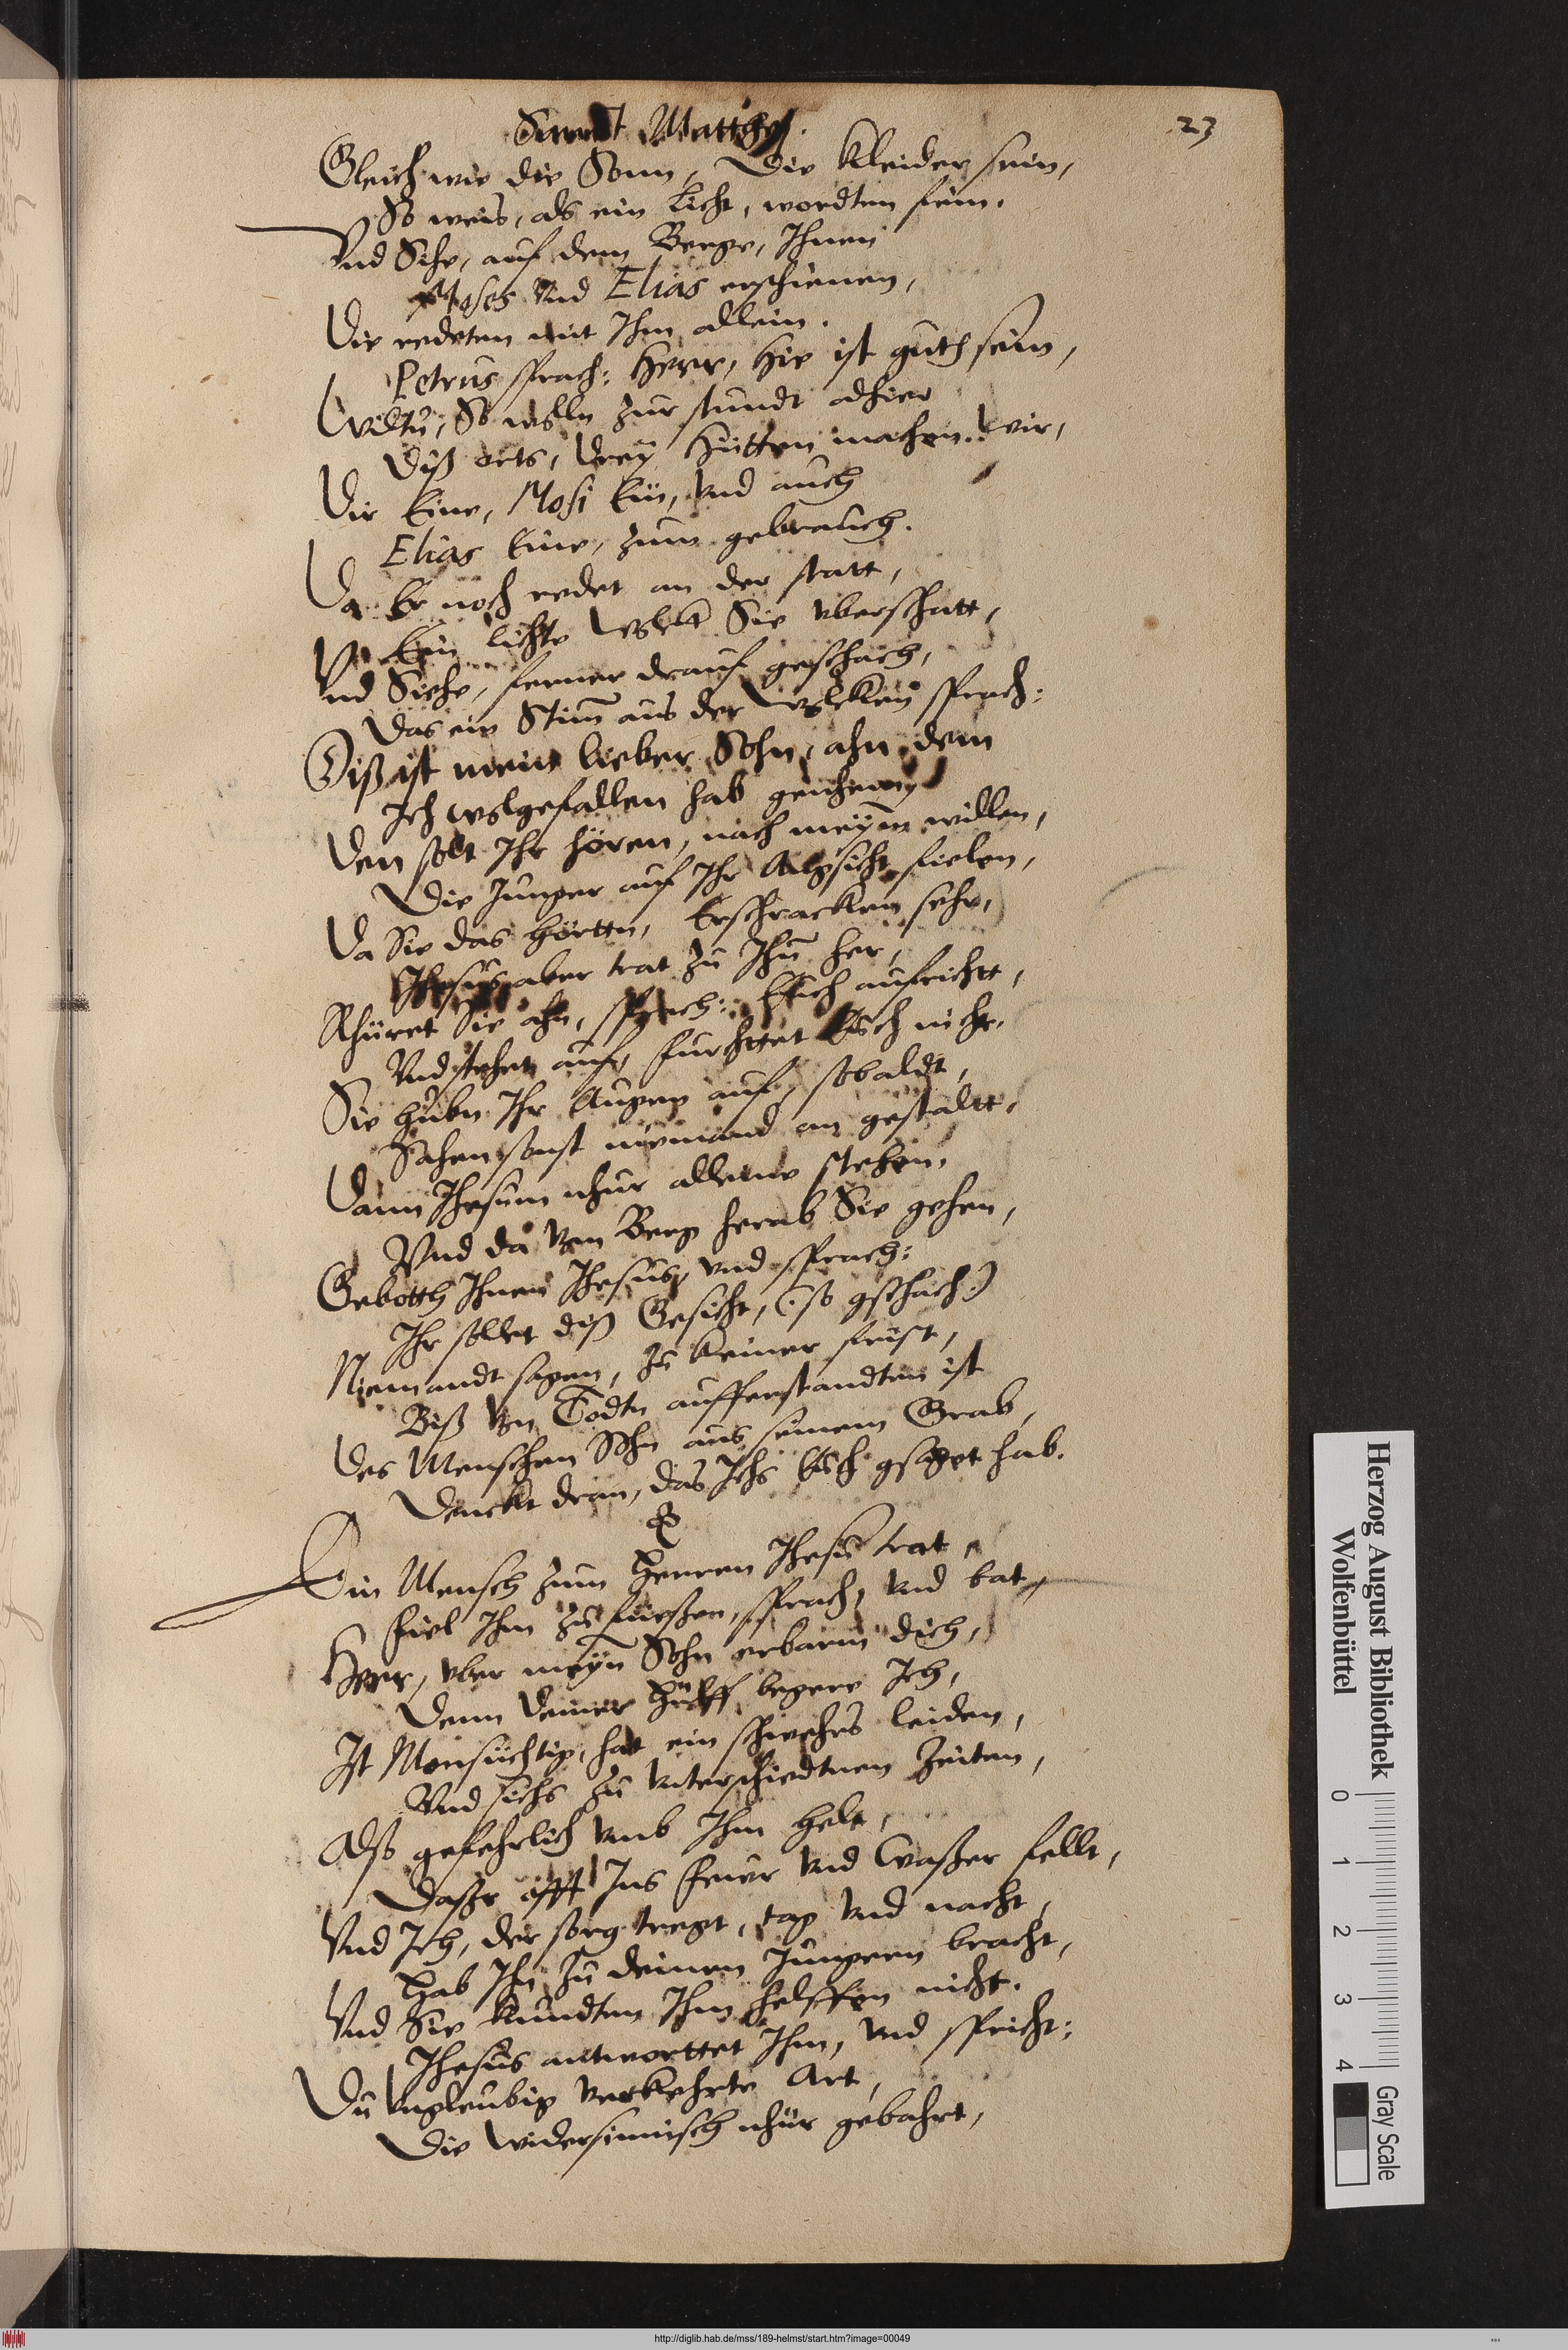 23
Sanct Matthej.
Gleich wie die Sonn, Die kleider sein,
So weis, als ein Licht, wordten sein.
Vnd Sihe, auf dem Berge, Ihnen
Moses Vnd Elias erschienen,
Die redeten mit Ihm allein.
Petrus sprach: Herr, hie ist guth sein,
Wiltu, So wolln zur stundt alhier
Diß orts, drey Hütten machen wir,
Dir Eine, Mosi Ein, Vnd auch
Elias Eine, zum gebrauch.
Da Er noch redet an der statt,
Ein lichte Wolck Sie vberschatt,
Vnd Siehe, ferner drauf geschach,
Das ein Stim aus der Wolcken sprach:
Diß ist mein lieber Sohn, ahn dem
Ich wolgefallen hab genehm
Den solt Ihr hören, nach meym willen,
Die Junger auf Ihr Angsicht fielen,
Da Sie das hörtten, Erschracken sehr,
Jhesus aber trat zu Ihn her,
Rhüret Sie ahn, sprach: Euch aufricht,
Vnd stehet auf, furchttet Euch nicht.
Sie huben Ihr Augen auf, sobaldt,
Sahen sonst niemand an gestaltt,
Dann Jhesum nhur alleine stehen.
Vnd da vom Berg herab Sie gehen,
Geboth Ihnen Jhesus, vnd sprach:
Ihr sollet diß Gesicht, (:so gschach:)
Niemandt sagen, zu keiner frist,
Biß von Todtn aufferstandten ist
Des Menschen Sohn aus seinem Grab,
Denckt dran, das Ichs Euch gsaget hab.
Ein Mensch zum Herren Jhesu trat,
fiel Ihm zu fueßen, sprach, vnd bat,
Herr, vber meyn Sohn erbarm dich,
Denn deiner Hülff begere Ich,
Ist Monsüchtig, hat ein schwehrs leiden,
Vnd sichs zu vnterschiedtnen Zeiten,
Also gefehrlich vmb Ihm helt,
Daßr offt Ins feuer vnd Waßer fellt,
Vnd Ich, der sorg tregt, tag vnd nacht,
Hab Ihn zu deinen Jungern bracht,
Vnd Sie kundten Ihm helffen nicht.
Jhesus antworttet Ihm, vnd spricht:
Du Vngleubig verkehrte Art,
Die widersinnisch nhur gebahrt,
Herzog August Bibliothek
Wolfenbüttel
0 1 2 3 4
Gray Scale
http://diglib.hab.de/mss/189-helmst/start.htm?image=00049